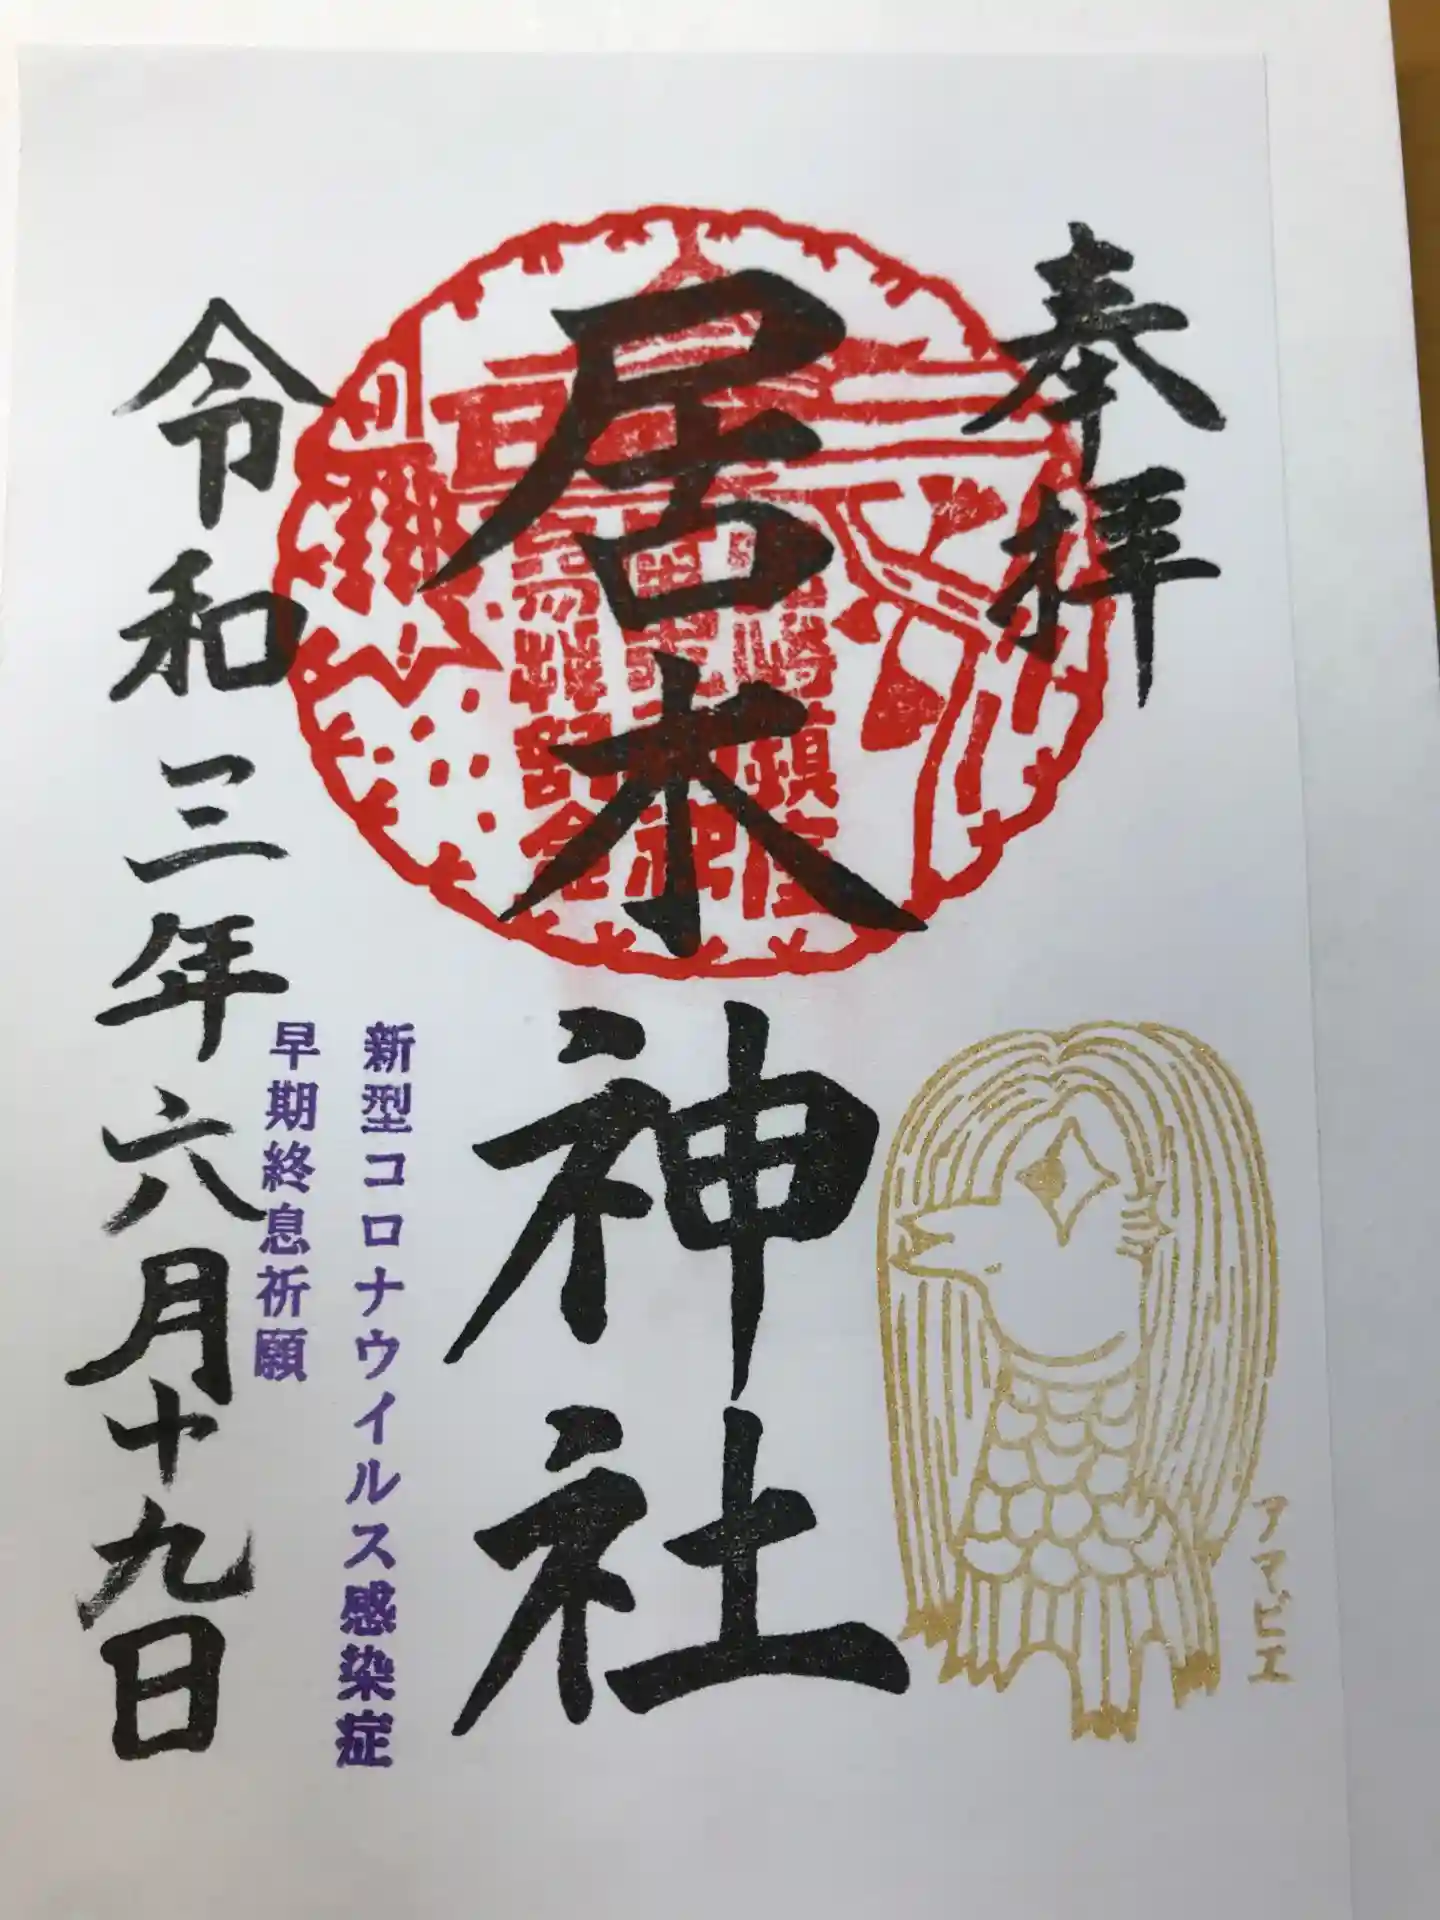 奉拝
居木神社
アマビエ
新型コロナウイルス感染症
早期終息祈願
令和三年六月十九日